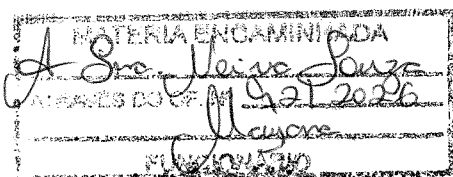 MATERIA ENCAMINHADA
A Sra. Neiva Souza
ATRAVÉS DO OF. Nº 921 2026
Mayara
FUNCIONÁRIO